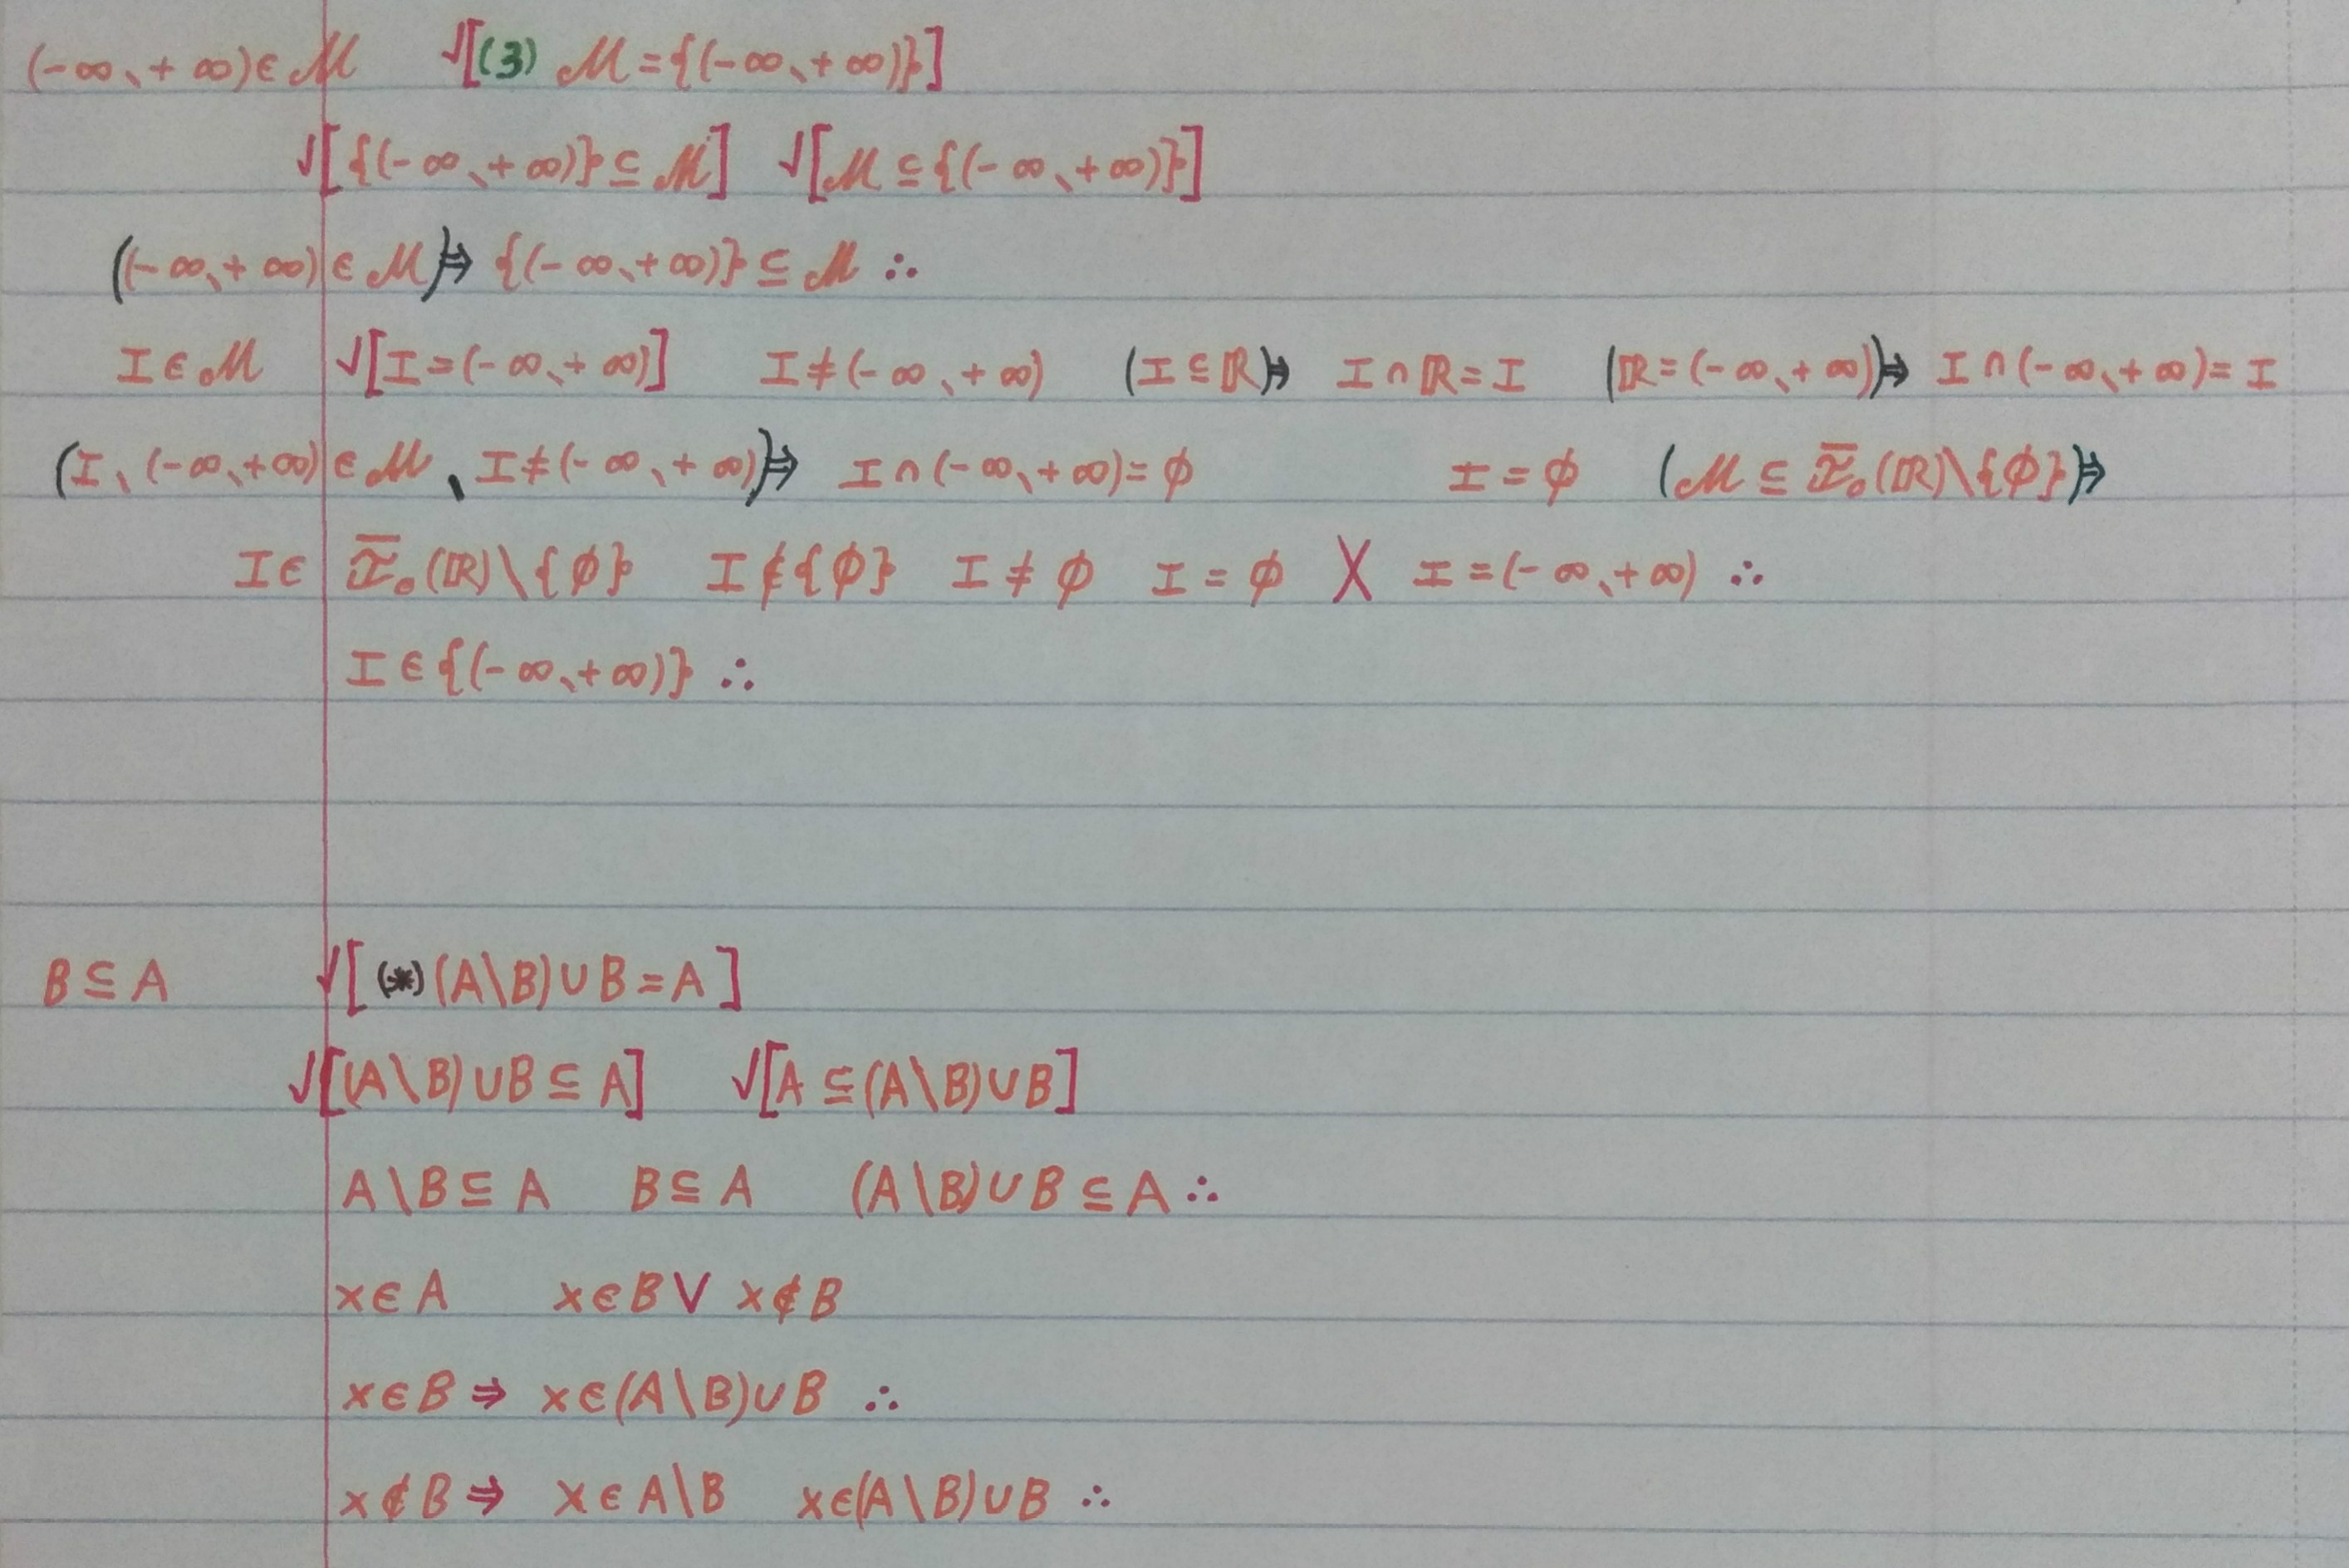 (-∞、+∞)∈ℳ √[(3) ℳ={(-∞、+∞)}]
√[{(-∞、+∞)}⊆ℳ] √[ℳ⊆{(-∞、+∞)}]
((-∞、+∞)∈ℳ)⇒ {(-∞、+∞)}⊆ℳ ∴
I∈ℳ √[I=(-∞、+∞)] I≠(-∞、+∞) (I⊆ℝ)⇒ I∩ℝ=I (ℝ=(-∞、+∞))⇒ I∩(-∞、+∞)=I
(I、(-∞、+∞)∈ℳ、I≠(-∞、+∞))⇒ I∩(-∞、+∞)=∅ I=∅ (ℳ⊆ℐ̅₀(ℝ)\{∅})⇒
I∈ℐ̅₀(ℝ)\{∅} I∉{∅} I≠∅ I=∅ X I=(-∞、+∞) ∴
I∈{(-∞、+∞)} ∴
B⊆A √[(*) (A\B)∪B=A]
√[(A\B)∪B⊆A] √[A⊆(A\B)∪B]
A\B⊆A B⊆A (A\B)∪B⊆A ∴
x∈A x∈B∨x∉B
x∈B⇒ x∈(A\B)∪B ∴
x∉B⇒ x∈A\B x∈(A\B)∪B ∴